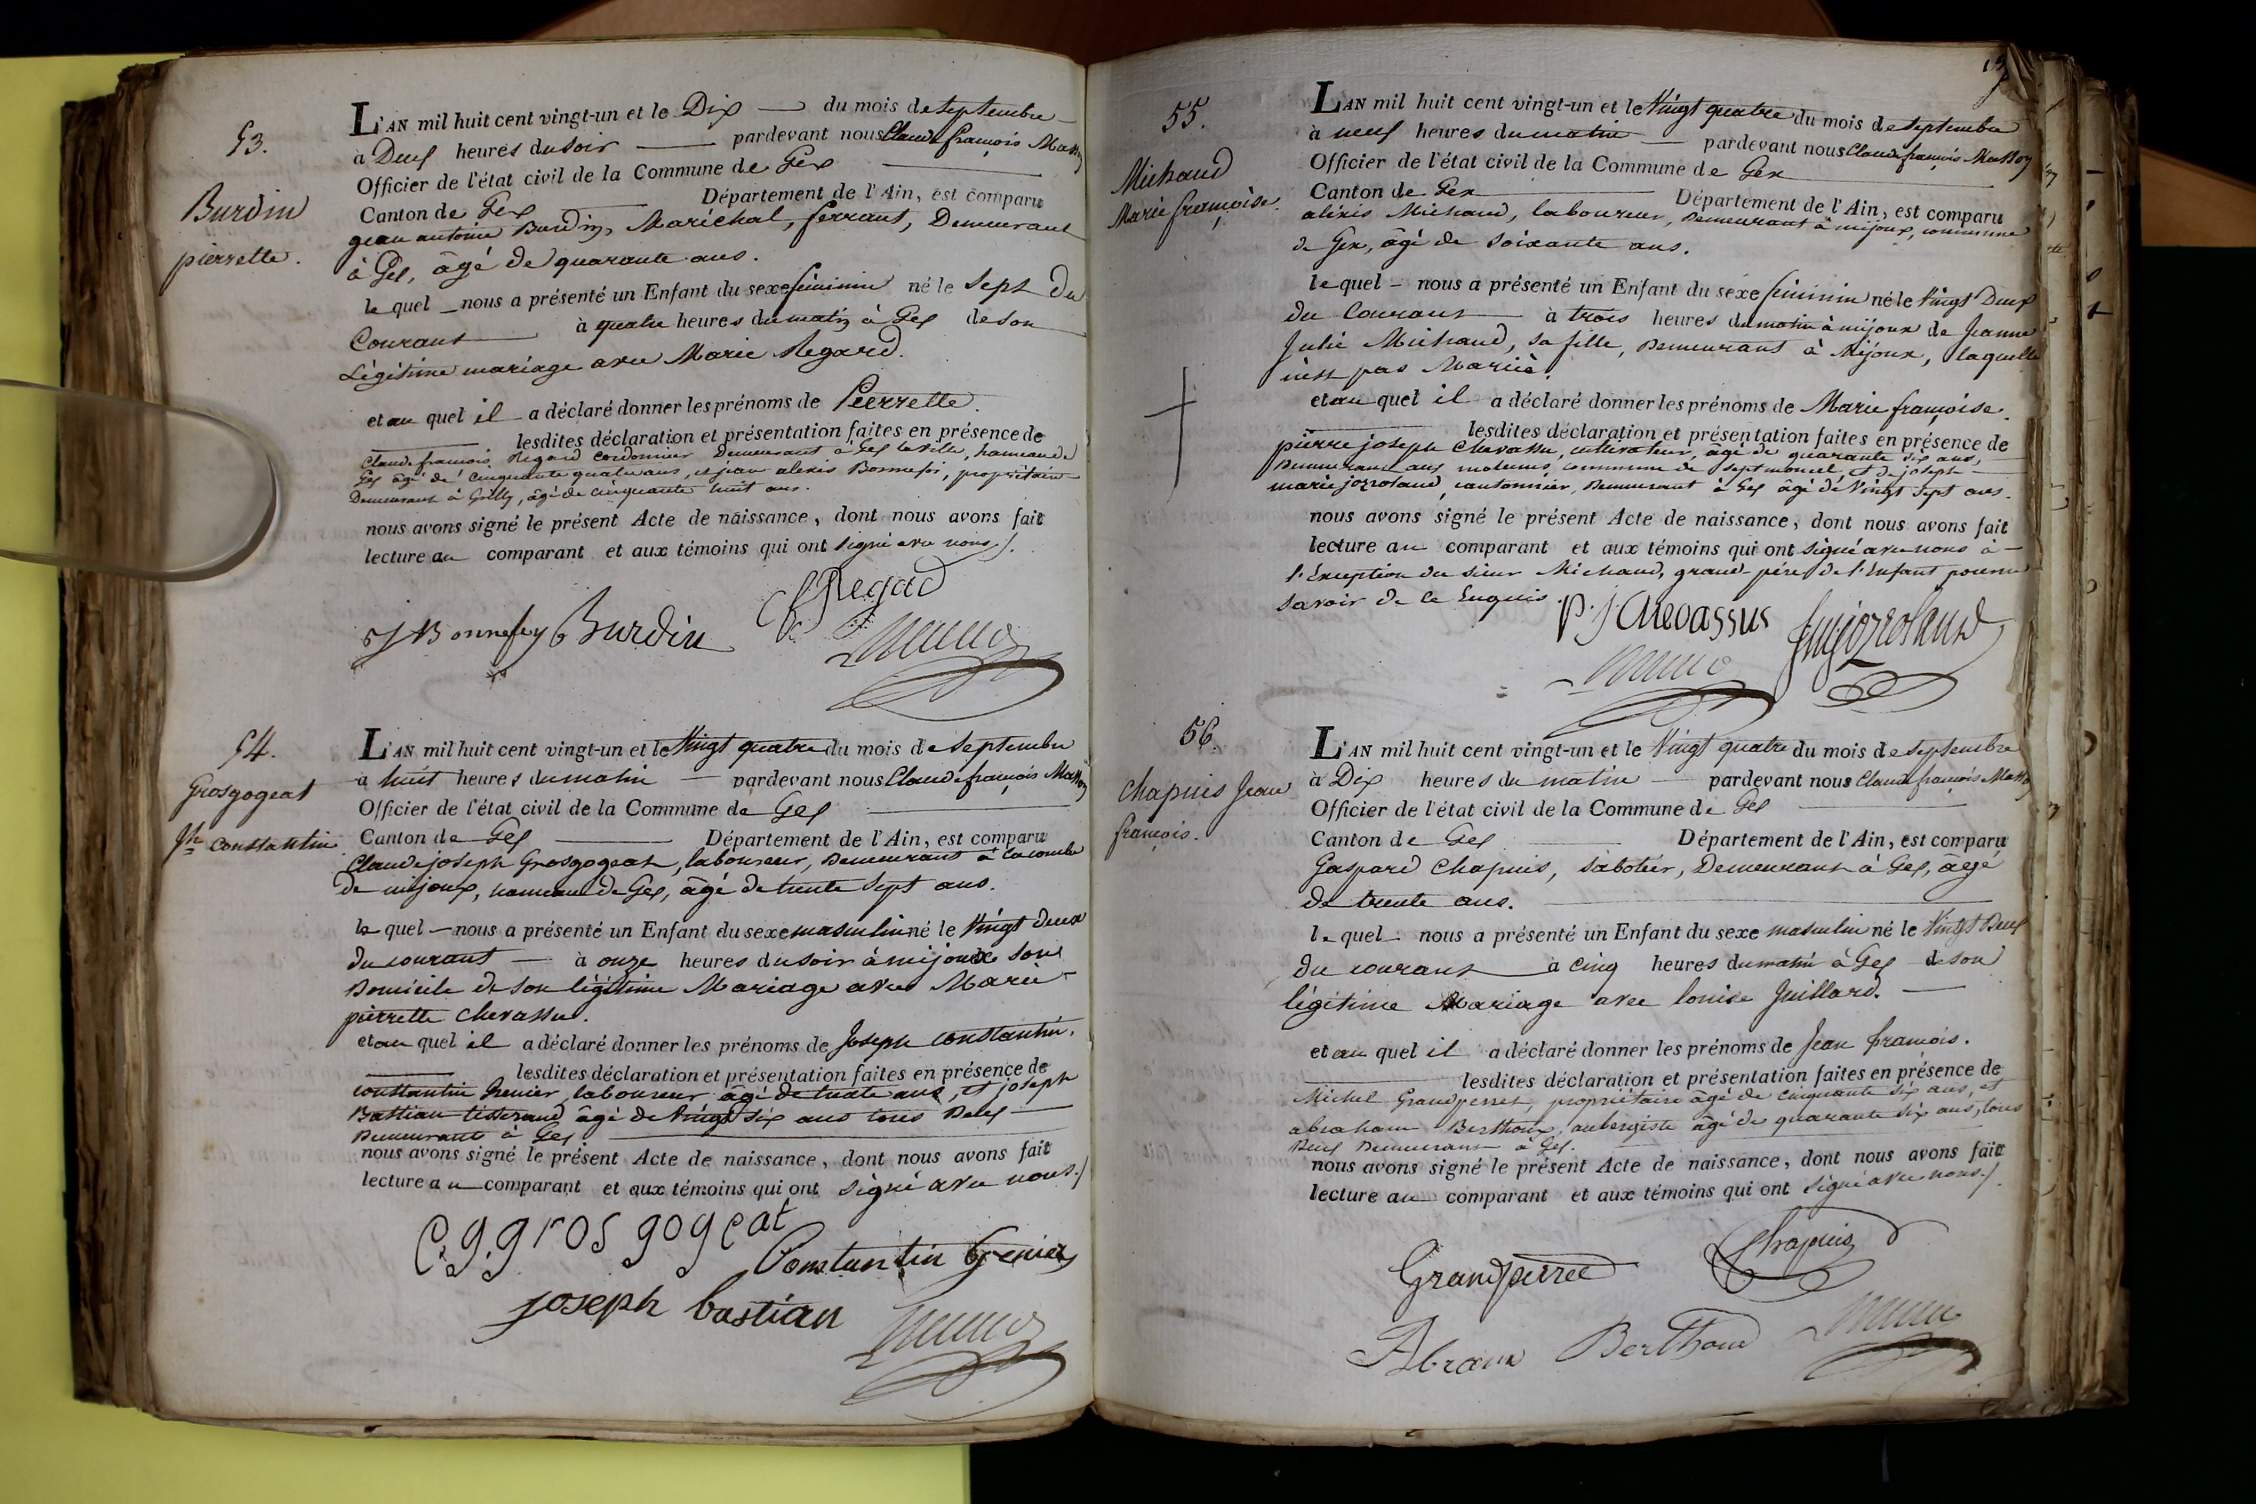 53.
Burdin
pierrette.
L'AN mil huit cent vingt-un et le Dix du mois de septembre
à Deux heures du soir pardevant nous Claude françois Masson
Officier de l'état civil de la Commune de Gex
Canton de Gex Département de l'Ain, est comparu
jean antoine Burdin, Maréchal, ferrant, Demeurant
à Gex, âgé de quarante ans.
le quel nous a présenté un Enfant du sexe féminin né le sept du
Courant à quatre heures du matin à Gex de son
Légitime mariage avec Marie Regard.
et au quel il a déclaré donner les prénoms de Pierrette.
lesdites déclaration et présentation faites en présence de
Claude françois Regard cordonnier Demeurant à Gex la ville, hameau de
Gex âgé de cinquante quatre ans, et jean alexis Bonnefoi, propriétaire
Demeurant à Grilly, âgé de cinquante huit ans.
nous avons signé le présent Acte de naissance, dont nous avons fait
lecture au comparant et aux témoins qui ont signé avec nous.
Regad
Bonnefoy Burdin
54.
Grosgogeat
Jh constantin
L'AN mil huit cent vingt-un et le Vingt quatre du mois de septembre
à huit heures du matin pardevant nous Claude françois Masson
Officier de l'état civil de la Commune de Gex
Canton de Gex Département de l'Ain, est comparu
Claude joseph Grosgogeat, laboureur, Demeurant à la combe
de mijoux, hameau de Gex, âgé de trente sept ans.
le quel nous a présenté un Enfant du sexe masculin né le Vingt deux
du courant à onze heures du soir à mijoux son
Domicile de son légitime Mariage avec Marie
pierrette Chevassu.
et au quel il a déclaré donner les prénoms de Joseph constantin.
lesdites déclaration et présentation faites en présence de
constantin Grenier, laboureur âgé de trente ans, et joseph
Bastian tisserand âgé de vingt six ans tous Deux
Demeurants à Gex
nous avons signé le présent Acte de naissance, dont nous avons fait
lecture au comparant et aux témoins qui ont signé avec nous.
C. g. gros gogeat
Constantin Grenier
joseph bastian
55.
Michaud
Marie françoise.
L'AN mil huit cent vingt-un et le Vingt quatre du mois de septembre
à neuf heures du matin pardevant nous Claude françois Masson
Officier de l'état civil de la Commune de Gex
Canton de Gex Département de l'Ain, est comparu
aléxis Michaud, laboureur, Demeurant à mijoux, commune
de Gex, âgé de soixante ans.
le quel nous a présenté un Enfant du sexe féminin né le Vingt Deux
du Courant à trois heures du matin à mijoux de Jeanne
Julie Michaud, sa fille, Demeurant à Mijoux, laquelle
n'est pas Mariée.
et au quel il a déclaré donner les prénoms de Marie françoise.
lesdites déclaration et présentation faites en présence de
pierre joseph Chevassu, cultivateur, âgé de quarante six ans,
Demeurant aux molunes, commune de septmoncel et de joseph
marie jozroland, cantonnier, Demeurant à Gex âgé de Vingt sept ans.
nous avons signé le présent Acte de naissance, dont nous avons fait
lecture au comparant et aux témoins qui ont signé avec nous à
l'Exception du sieur Michaud, grand-père de l'Enfant pour ne
savoir de ce Enquis.
P. J Chevassus
jozroland
56.
chapuis Jean
françois.
L'AN mil huit cent vingt-un et le Vingt quatre du mois de septembre
à Dix heures du matin pardevant nous Claude françois Masson
Officier de l'état civil de la Commune de Gex
Canton de Gex Département de l'Ain, est comparu
Gaspard Chapuis, sabotier, Demeurant à Gex, âgé
de trente ans.
le quel nous a présenté un Enfant du sexe masculin né le Vingt Deux
du courant à cinq heures du matin à Gex de son
légitime Mariage avec louise Juillard.
et au quel il a déclaré donner les prénoms de Jean françois.
lesdites déclaration et présentation faites en présence de
Michel Grandperret, propriétaire âgé de cinquante six ans, et
abraham Berthoux, aubergiste âgé de quarante six ans, tous
Deux Demeurant à Gex.
nous avons signé le présent Acte de naissance, dont nous avons fait
lecture au comparant et aux témoins qui ont signé avec nous.
Grandperret Chapuis
Abram Berthoud